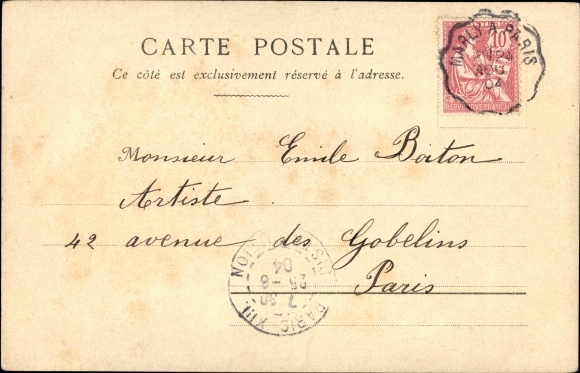 CARTE POSTALE
Ce côté est exclusivement réservé à l'adresse.
10
REPUBLIQUE FRANÇAISE
MARLY A PARIS
AOU
04
Monsieur Emile Boiton
Artiste
42 avenue des Gobelins
Paris
PARIS XIII
7 30
25 - 8
04
DISTRIBUTION